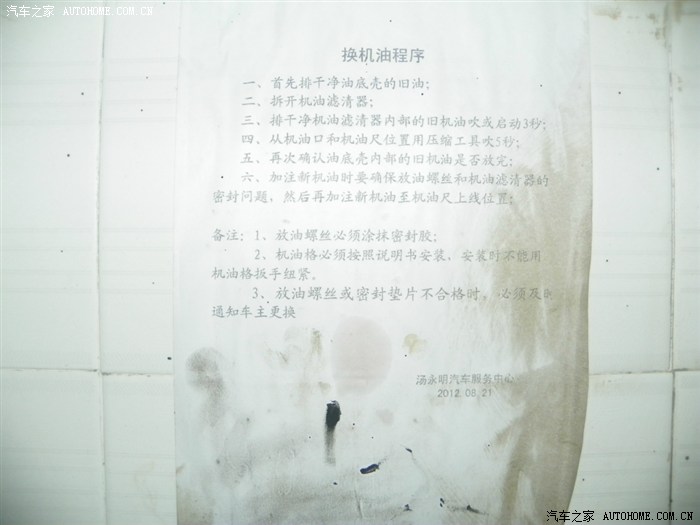 汽车之家 AUTOHOME.COM.CN
换机油程序
一、首先排干净油底壳的旧油;
二、拆开机油滤清器;
三、排干净机油滤清器内部的旧机油吹或启动3秒;
四、从机油口和机油尺位置用压缩工具吹5秒;
五、再次确认油底壳内部的旧机油是否放完;
六、加注新机油时要确保放油螺丝和机油滤清器的
密封问题,然后再加注新机油至机油尺上线位置;
备注:1、放油螺丝必须涂抹密封胶;
2、机油格必须按照说明书安装,安装时不能用
机油格扳手纽紧。
3、放油螺丝或密封垫片不合格时。必须及时
通知车主更换
汤永明汽车服务中心
2012.08.21
汽车之家 AUTOHOME.COM.CN